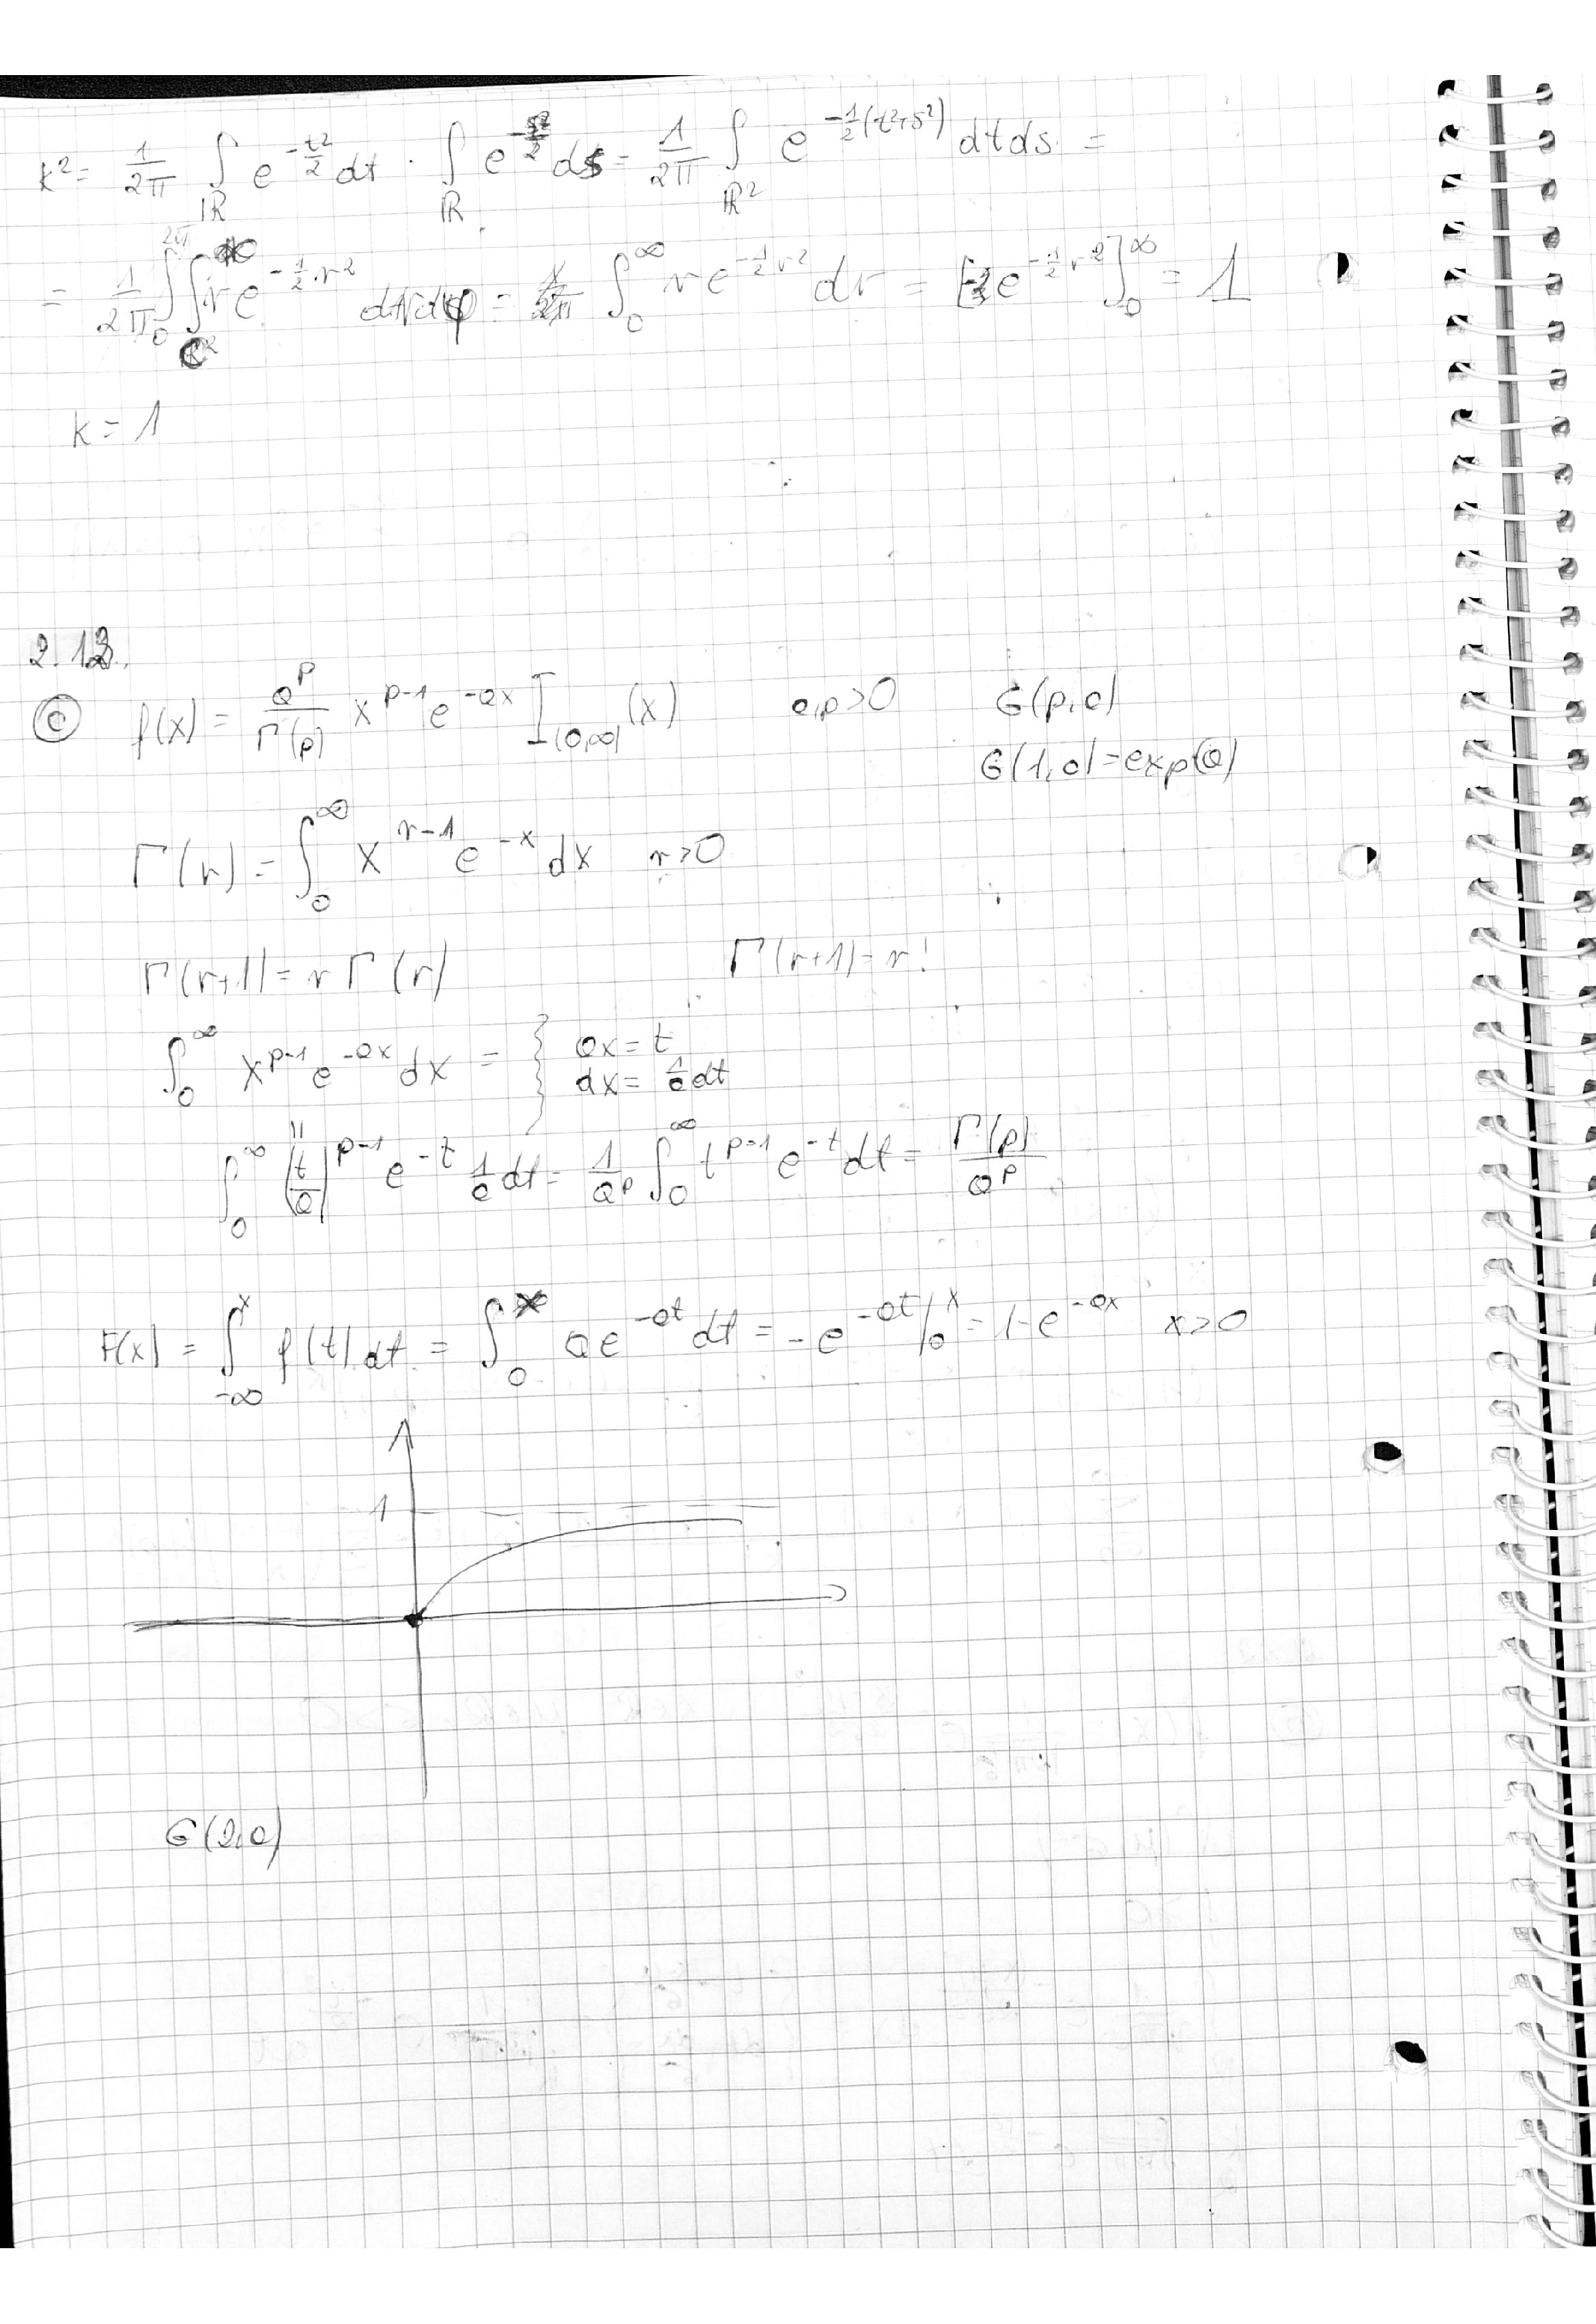 k² = 1/2π ∫_ℝ e^(-t²/2) dt · ∫_ℝ e^(-s²/2) ds = 1/2π ∫_ℝ² e^(-1/2(t²+s²)) dt ds =
= 1/2π ∫_0^2π ∫_0^∞ r e^(-1/2 r²) dr dφ = ∫_0^∞ r e^(-1/2 r²) dr = [-e^(-1/2 r²)]_0^∞ = 1
k = 1
2.12.
ⓒ f(x) = a^p/Γ(p) x^(p-1) e^(-ax) I_(0,∞)(x) a,p>0 G(p,a)
G(1,a) = exp(a)
Γ(r) = ∫_0^∞ x^(r-1) e^(-x) dx r>0
Γ(r+1) = r Γ(r) Γ(r+1) = r!
∫_0^∞ x^(p-1) e^(-ax) dx = } ax = t
dx = 1/a dt
=
∫_0^∞ (t/a)^(p-1) e^(-t) 1/a dt = 1/a^p ∫_0^∞ t^(p-1) e^(-t) dt = Γ(p)/a^p
F(x) = ∫_-∞^x f(t) dt = ∫_0^x a e^(-at) dt = -e^(-at) |_0^x = 1-e^(-ax) x>0
1
G(2,a)